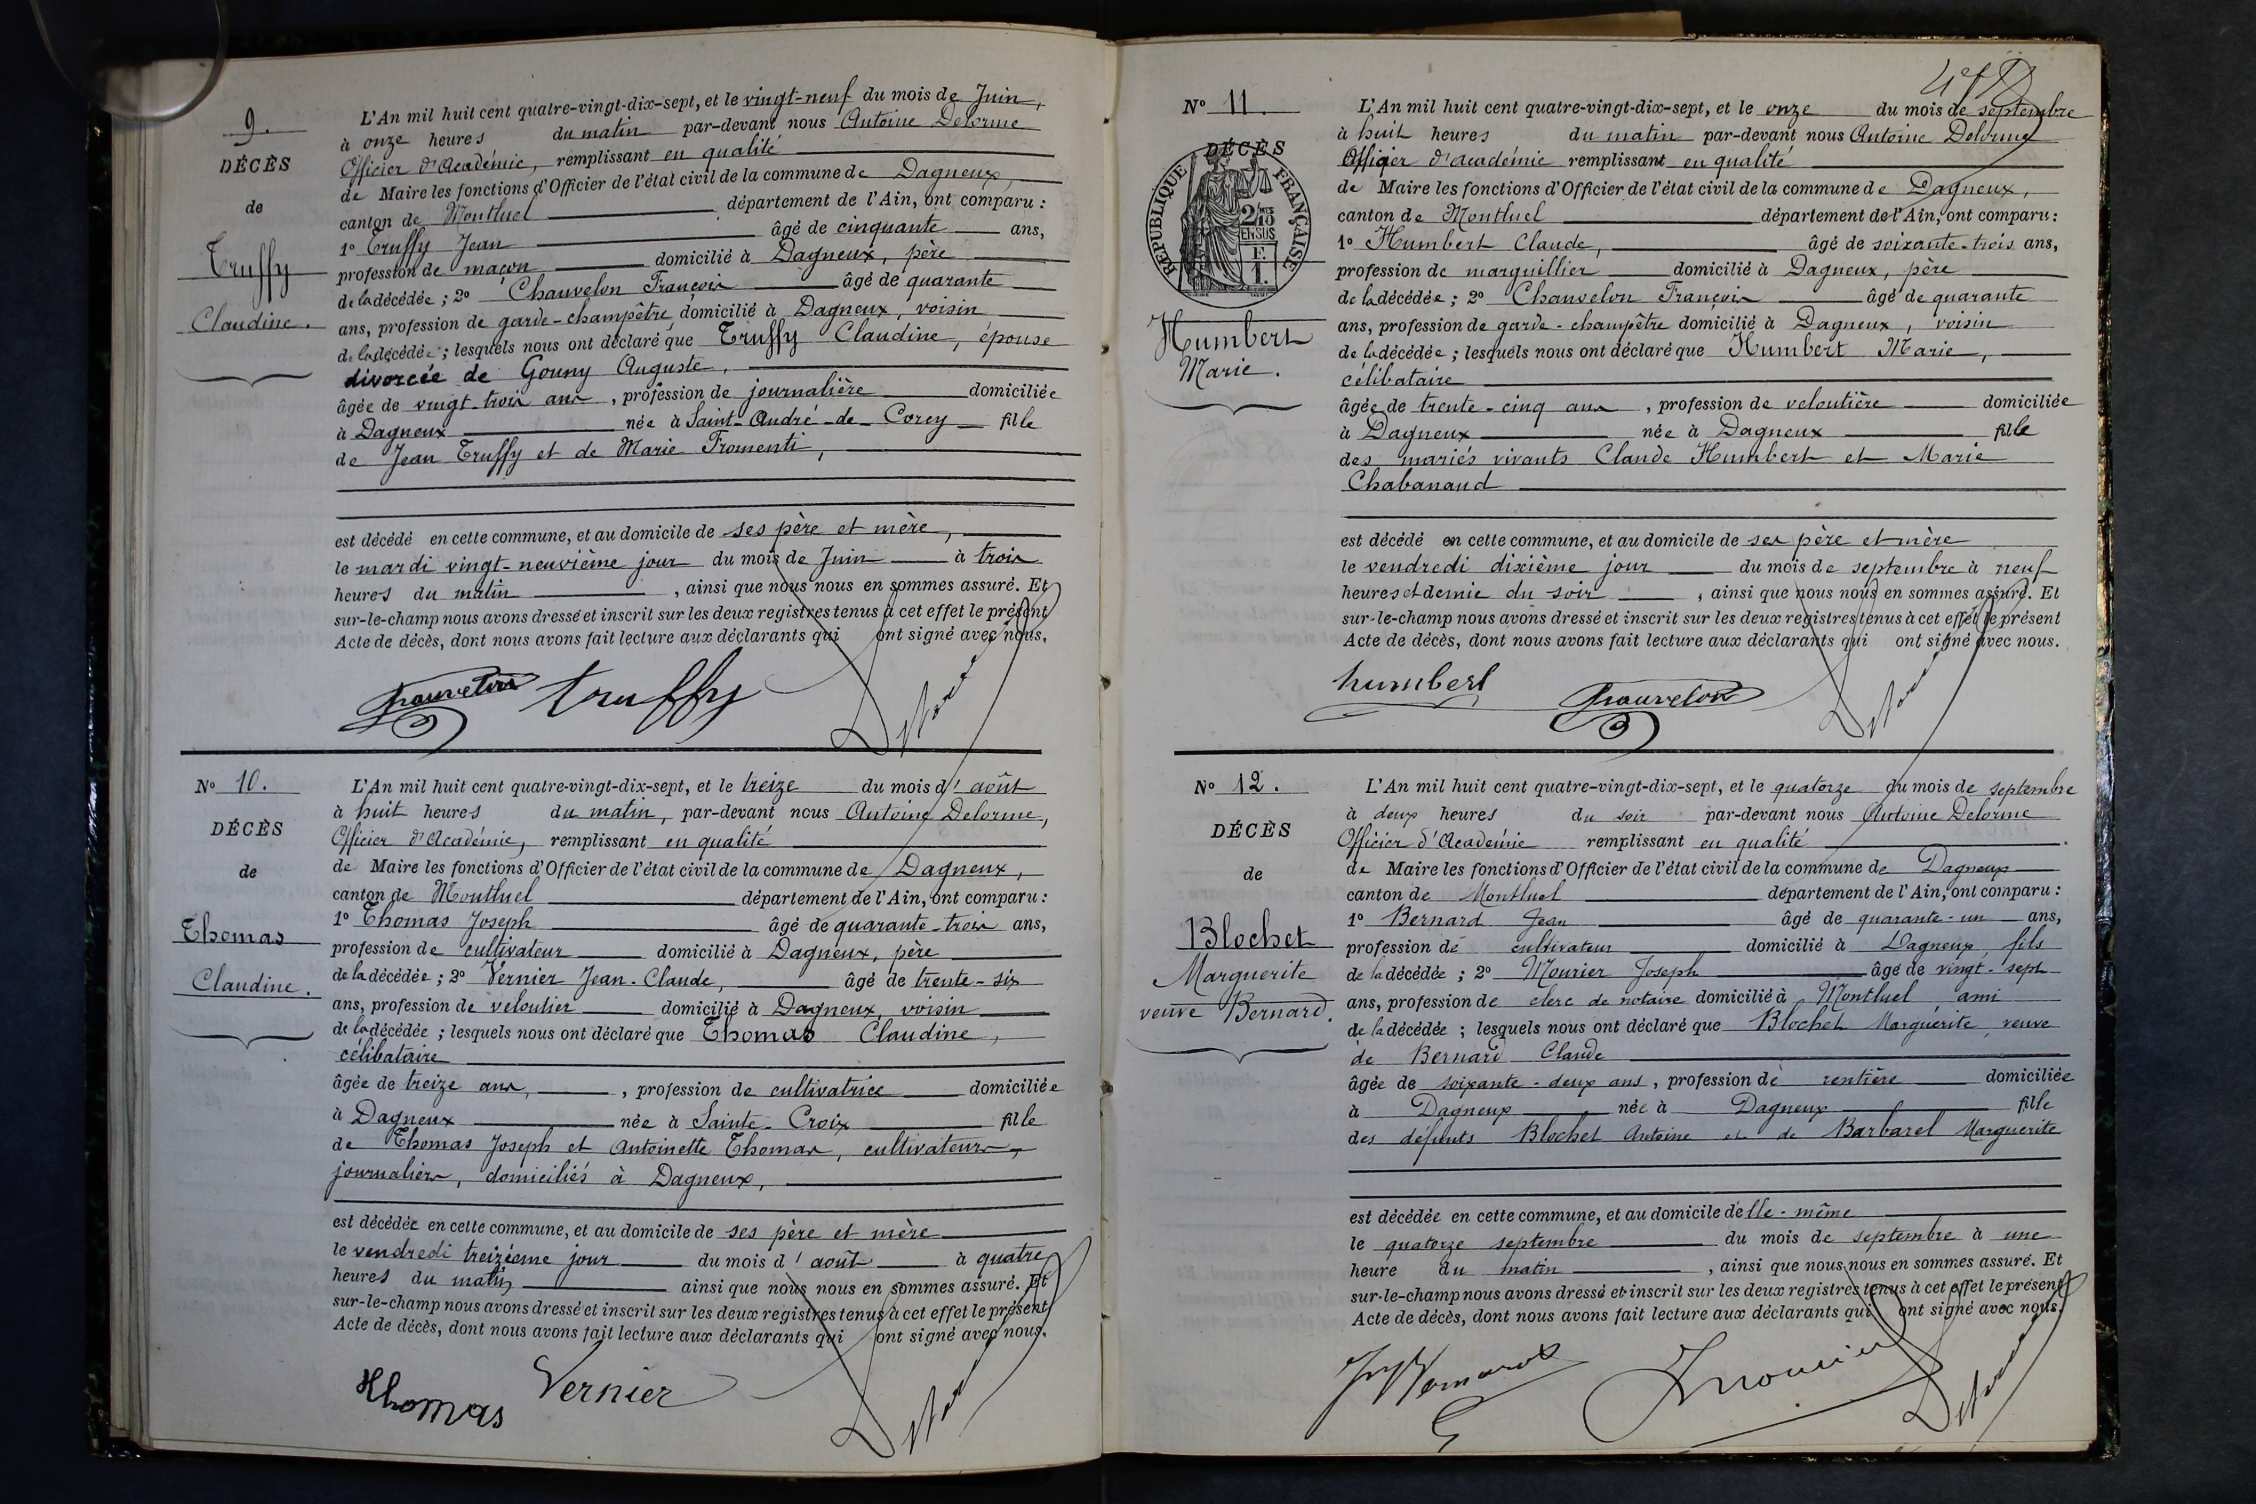 9.
DÉCÈS
de
Truffy
Claudine.
L'An mil huit cent quatre-vingt-dix-sept, et le vingt-neuf du mois de Juin,
à onze heures du matin par-devant nous Antoine Delorme
Officier d'Académie, remplissant en qualité
de Maire les fonctions d'Officier de l'état civil de la commune de Dagneux,
canton de Montluel département de l'Ain, ont comparu :
1º Truffy Jean âgé de cinquante ans,
profession de maçon domicilié à Dagneux, père
de la décédée ; 2º Chauvelon François âgé de quarante
ans, profession de garde-champêtre domicilié à Dagneux, voisin
de la décédée ; lesquels nous ont déclaré que Truffy Claudine, épouse
divorcée de Gouny Auguste,
âgée de vingt-trois ans, profession de journalière domiciliée
à Dagneux née à Saint-André-de-Corcy fille
de Jean Truffy et de Marie Fromenti,
est décédé en cette commune, et au domicile de ses père et mère,
le mardi vingt-neuvième jour du mois de Juin à trois
heures du matin, ainsi que nous nous en sommes assuré. Et
sur-le-champ nous avons dressé et inscrit sur les deux registres tenus à cet effet le présent
Acte de décès, dont nous avons fait lecture aux déclarants qui ont signé avec nous.
Chauvelon truffy Delorme
Nº 10.
DÉCÈS
de
Thomas
Claudine.
L'An mil huit cent quatre-vingt-dix-sept, et le treize du mois d'août
à huit heures du matin, par-devant nous Antoine Delorme,
Officier d'Académie, remplissant en qualité
de Maire les fonctions d'Officier de l'état civil de la commune de Dagneux,
canton de Montluel département de l'Ain, ont comparu :
1º Thomas Joseph âgé de quarante-trois ans,
profession de cultivateur domicilié à Dagneux, père
de la décédée ; 2º Vernier Jean-Claude, âgé de trente-six
ans, profession de veloutier domicilié à Dagneux, voisin
de la décédée ; lesquels nous ont déclaré que Thomas Claudine,
célibataire
âgée de treize ans, , profession de cultivatrice domiciliée
à Dagneux née à Sainte-Croix fille
de Thomas Joseph et Antoinette Thomas, cultivateurs,
journaliers, domiciliés à Dagneux,
est décédée en cette commune, et au domicile de ses père et mère
le vendredi treizième jour du mois d'août à quatre
heures du matin ainsi que nous nous en sommes assuré. Et
sur-le-champ nous avons dressé et inscrit sur les deux registres tenus à cet effet le présent
Acte de décès, dont nous avons fait lecture aux déclarants qui ont signé avec nous.
Thomas Vernier Delorme
Nº 11.
DÉCÈS
RÉPUBLIQUE FRANÇAISE
Humbert
Marie.
L'An mil huit cent quatre-vingt-dix-sept, et le onze du mois de septembre
à huit heures du matin par-devant nous Antoine Delorme
Officier d'académie remplissant en qualité
de Maire les fonctions d'Officier de l'état civil de la commune de Dagneux,
canton de Montluel département de l'Ain, ont comparu :
1º Humbert Claude, âgé de soixante-trois ans,
profession de marguillier domicilié à Dagneux, père
de la décédée ; 2º Chauvelon François âgé de quarante
ans, profession de garde-champêtre domicilié à Dagneux, voisin
de la décédée ; lesquels nous ont déclaré que Humbert Marie,
célibataire
âgée de trente-cinq ans, profession de veloutière domiciliée
à Dagneux née à Dagneux fille
des mariés vivants Claude Humbert et Marie
Chabanaud
est décédé en cette commune, et au domicile de ses père et mère
le vendredi dixième jour du mois de septembre à neuf
heures et demie du soir, ainsi que nous nous en sommes assuré. Et
sur-le-champ nous avons dressé et inscrit sur les deux registres tenus à cet effet le présent
Acte de décès, dont nous avons fait lecture aux déclarants qui ont signé avec nous.
humbert Chauvelon Delorme
Nº 12.
DÉCÈS
de
Blochet
Marguerite
veuve Bernard.
L'An mil huit cent quatre-vingt-dix-sept, et le quatorze du mois de septembre
à deux heures du soir par-devant nous Antoine Delorme
Officier d'Académie remplissant en qualité
de Maire les fonctions d'Officier de l'état civil de la commune de Dagneux
canton de Montluel département de l'Ain, ont comparu :
1º Bernard Jean âgé de quarante-un ans,
profession de cultivateur domicilié à Dagneux fils
de la décédée ; 2º Mourier Joseph âgé de vingt-sept
ans, profession de clerc de notaire domicilié à Montluel ami
de la décédée ; lesquels nous ont déclaré que Blochet Marguerite, veuve
de Bernard Claude
âgée de soixante-deux ans, profession de rentière domiciliée
à Dagneux née à Dagneux fille
des défunts Blochet Antoine et de Barbarel Marguerite
est décédée en cette commune, et au domicile d'elle-même
le quatorze septembre du mois de septembre à une
heure du matin, ainsi que nous nous en sommes assuré. Et
sur-le-champ nous avons dressé et inscrit sur les deux registres tenus à cet effet le présent
Acte de décès, dont nous avons fait lecture aux déclarants qui ont signé avec nous.
Bernard Jmourier Delorme